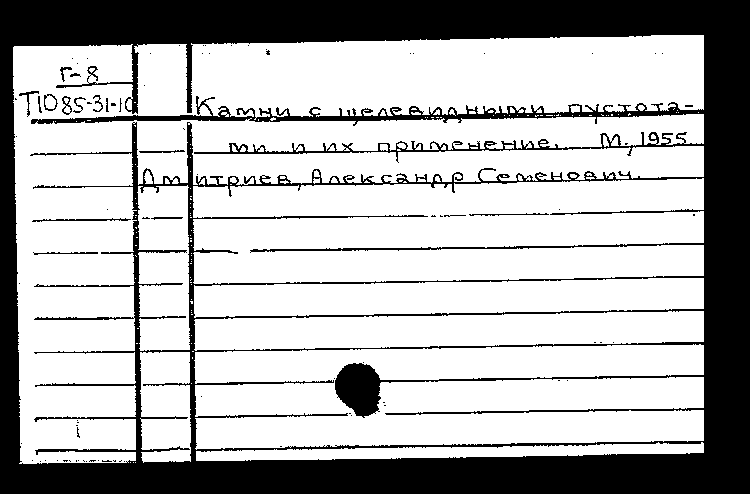 Г-8
Т1085-31-10
Камни с щелевидными пустота-
ми и их применение. М., 1955.
Дмитриев, Александр Семенович.